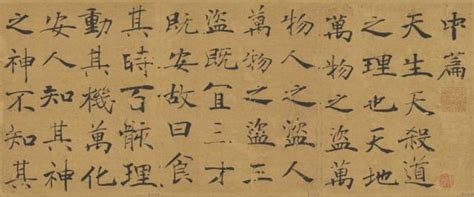 中篇
天生天殺道
之理也天地
萬物之盜萬
物人之盜人
萬物之盜三
盜既宜三才
既安故曰食
其時百骸理
動其機萬化
安人知其神
之神不知其